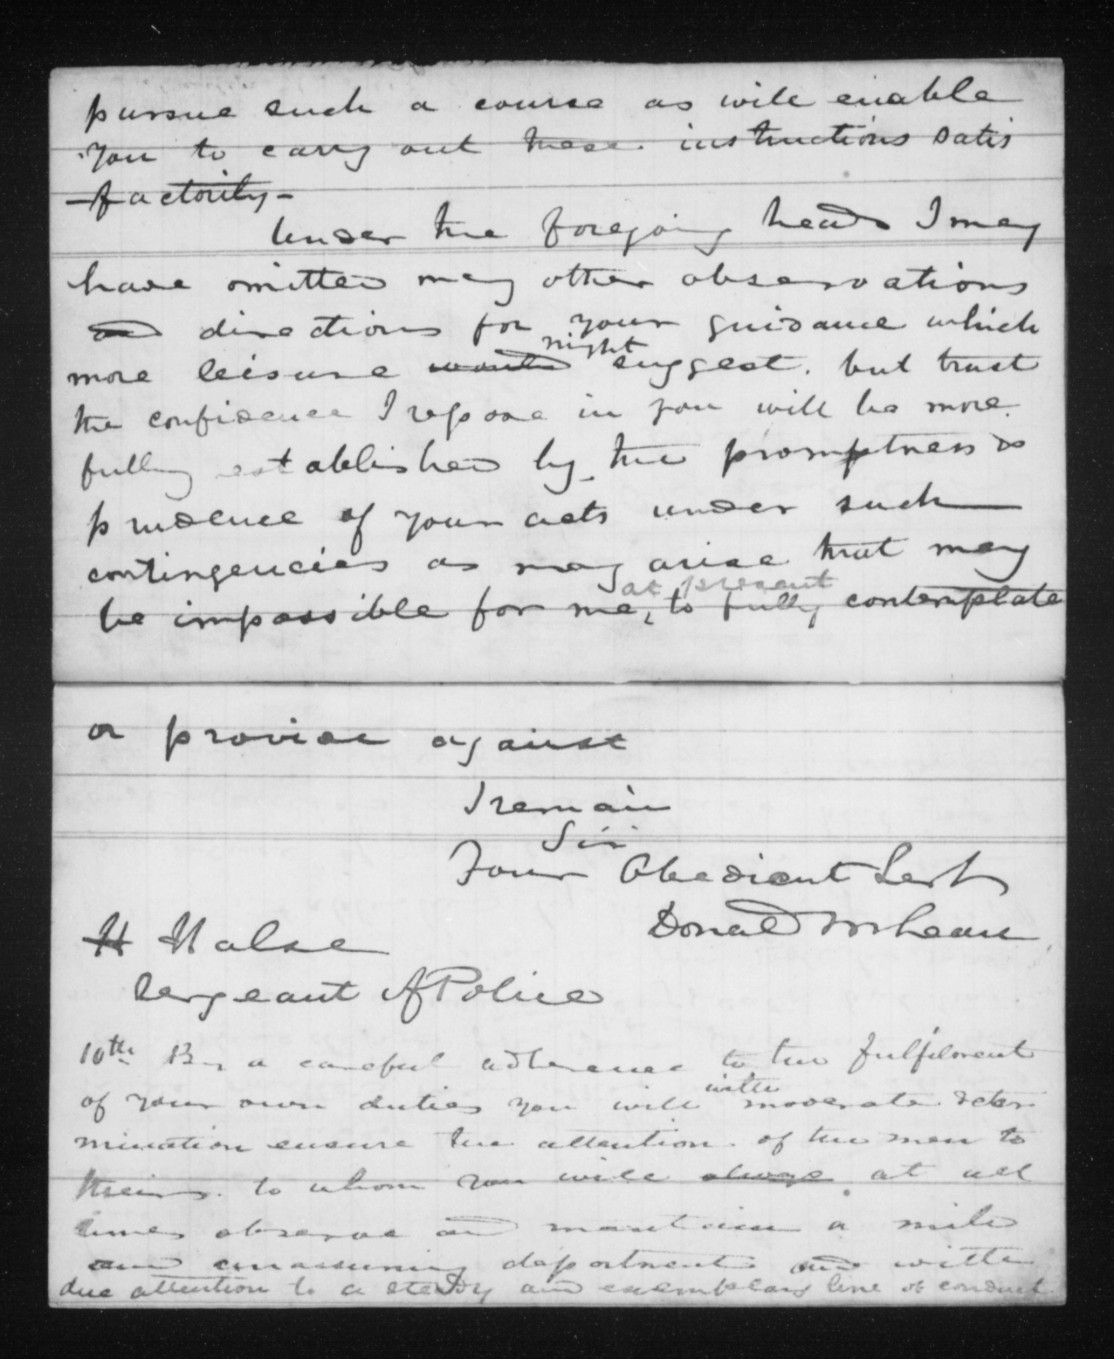 pursue such a course as will enable
you to carry out these instructions satis
-factorily-
Under the foregoing heads I may
have omitted many other observations
and directions for your guidance which
more leisure would might suggest. but trust
the confidence I repose in you will be more
fully established by the promptness &
prudence of your acts under such
contingencies as may arise that may
at present
be impossible for me, to fully contemplate
or provide against
I remain
Sir
Your Obedient Servt
Donald McLean
H Halse
Sergeant A Police
10th By a careful adherence to the fulfilment
of your own duties you will with moderate deter
mination ensure the attention of the men to
theirs. to whom you will always at all
times observe and maintain a mild
and unassuming deportment and with
due attention to a steady and exemplary line of conduct